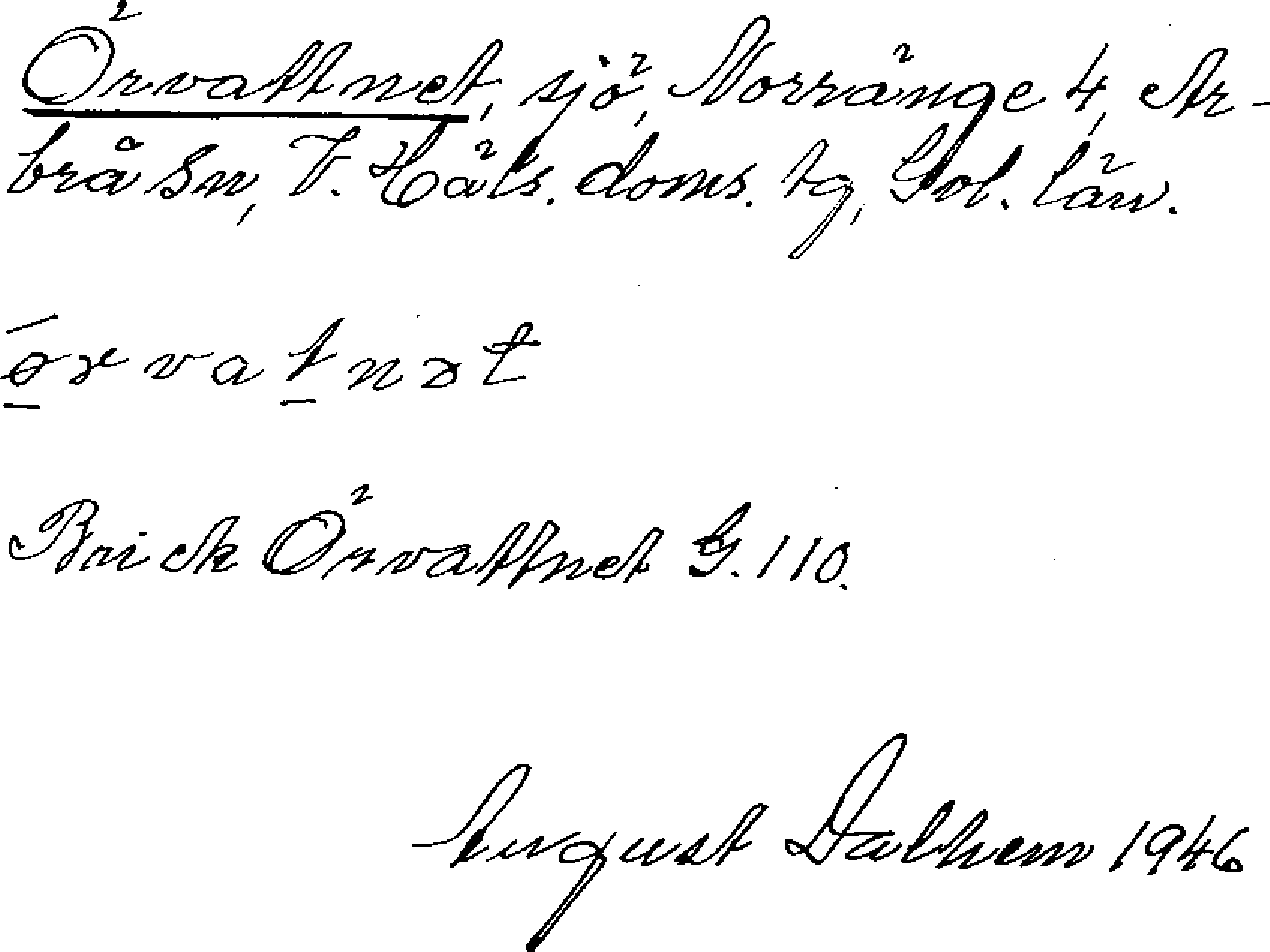 Örvattnet, sjö, Norränge 4, Ar-
brå sn, V. Häls. doms. tg, Gvl. län.
ørvatnət
Brick Örvattnet G. 110.
August Dalhem 1946